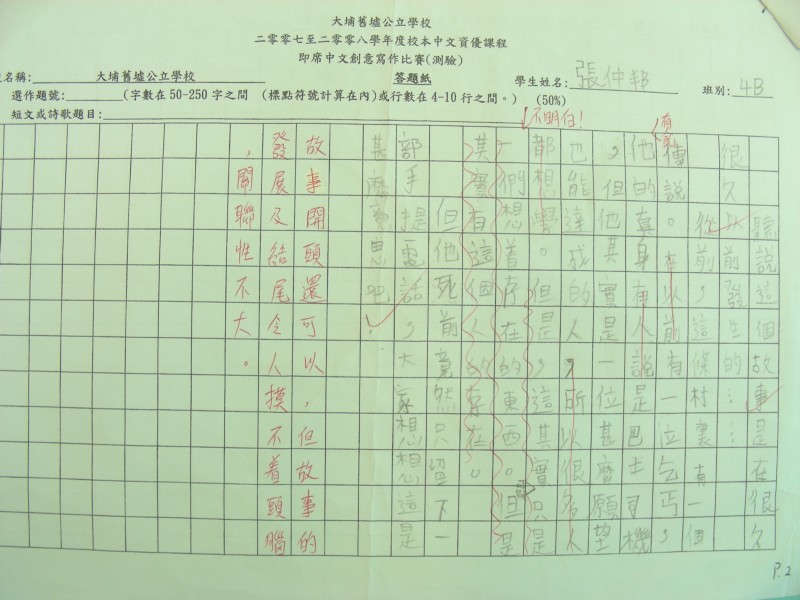 大埔舊墟公立學校
二零零七至二零零八學年度校本中文資優課程
即席中文創意寫作比賽(測驗)
名稱: 大埔舊墟公立學校 答題紙 學生姓名: 張仲邦 班別: 4B
選作題號: (字數在 50-250 字之間 (標點符號計算在內)或行數在 4-10 行之間。) (50%)
短文或詩歌題目:
不明白!
聽說這個故事是在很久
很久以前發生的……
從前,這條村裏有一個
傳說。在以前有一位乞丐,
他的真身有人說是巴士司機
,但他其實是一位甚麼願望
也能達成的人,所以很多人
都想學。但是,這其實只是
們想着存在的東西。但是
其實有這個人的存在。
但他死前竟然只留下一
部手提電話,大家想想這是
甚麼意思吧!
故事開頭還可以,但故事的
發展及結尾令人摸不着頭腦
,關聯性不大。
P.2